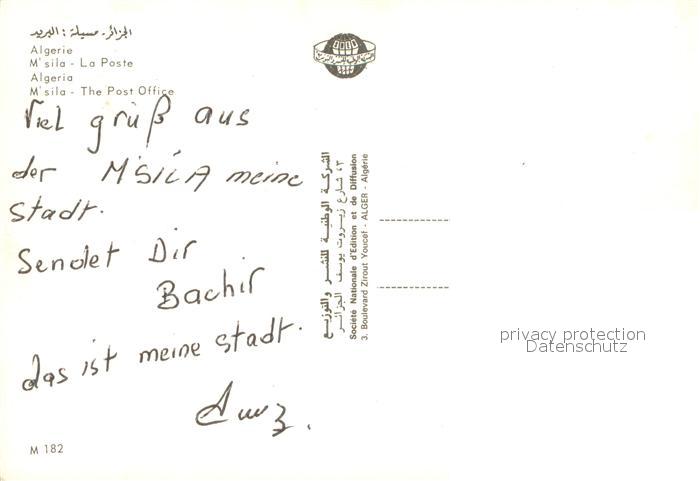 الجزائر. مسيلة : البريد
Algerie
M'sila - La Poste
Algeria
M'sila - The Post Office
Viel grüß aus
der M'SILA meine
stadt.
Sendet Dir
Bachir
das ist meine stadt.
M 182
الشركة الوطنية للنشر والتوزيع
٤٣ شارع زيروت يوسف الجزائر
Société Nationale d'Edition et de Diffusion
3. Boulevard Zirout Youcef - ALGER - Algérie
privacy protection
Datenschutz